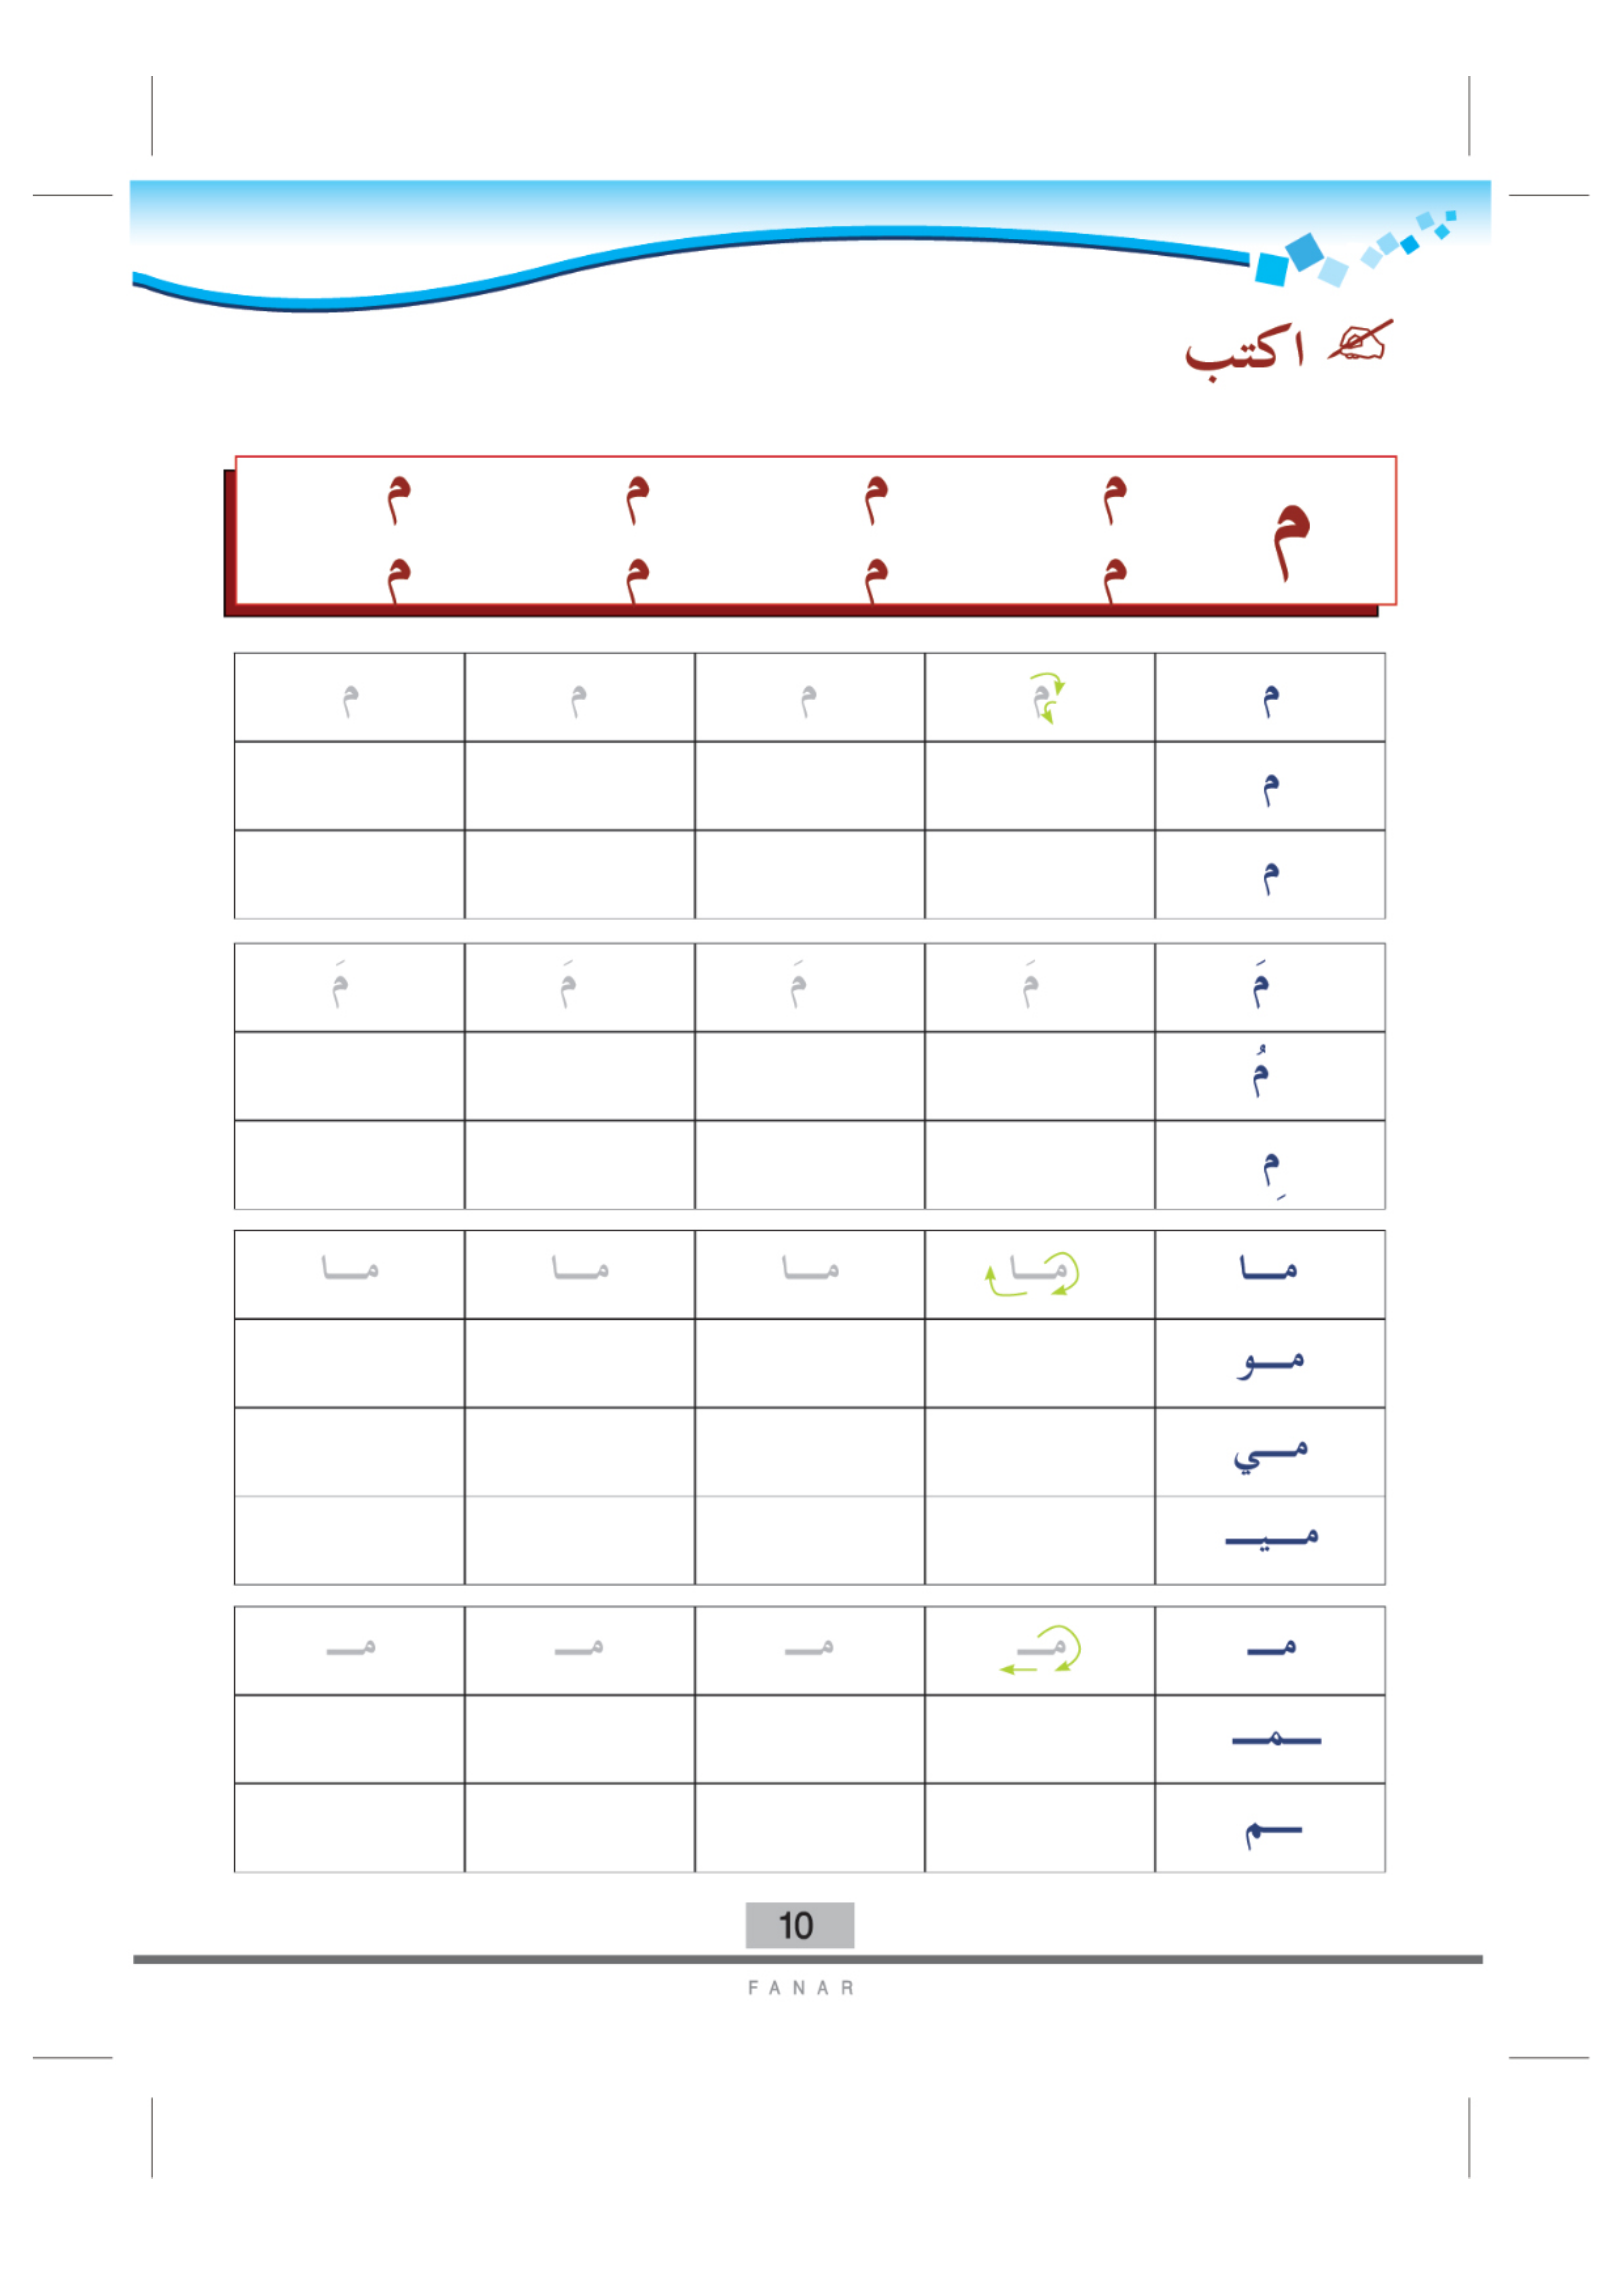 اكتب
م م م م م
م م م م
م م م م م
م
م
مَ مَ مَ مَ مَ
مُ
مِ
مـــا مـــا مـــا مـــا مـــا
مـــو
مـــي
مـــيـــ
مـــ مـــ مـــ مـــ مـــ
ـــمـــ
ـــم
10
FANAR